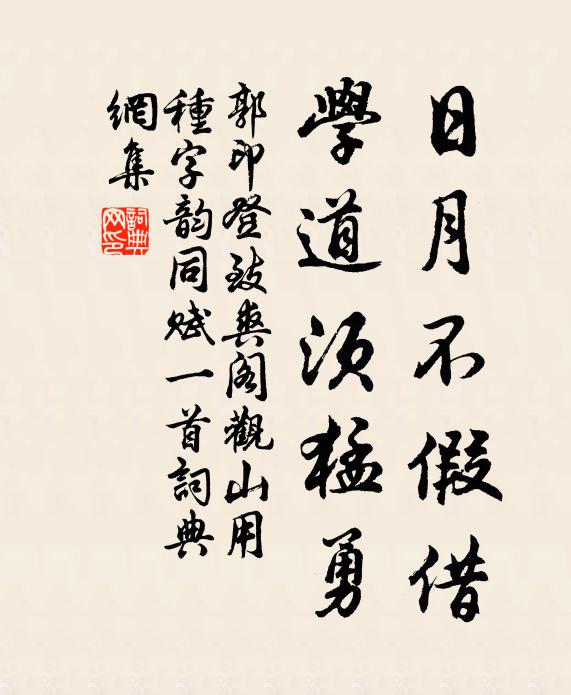 日月不假借
學道須猛勇
郭印登致爽閣觀山用
種字韵同賦一首詞典
網集
詞典网印